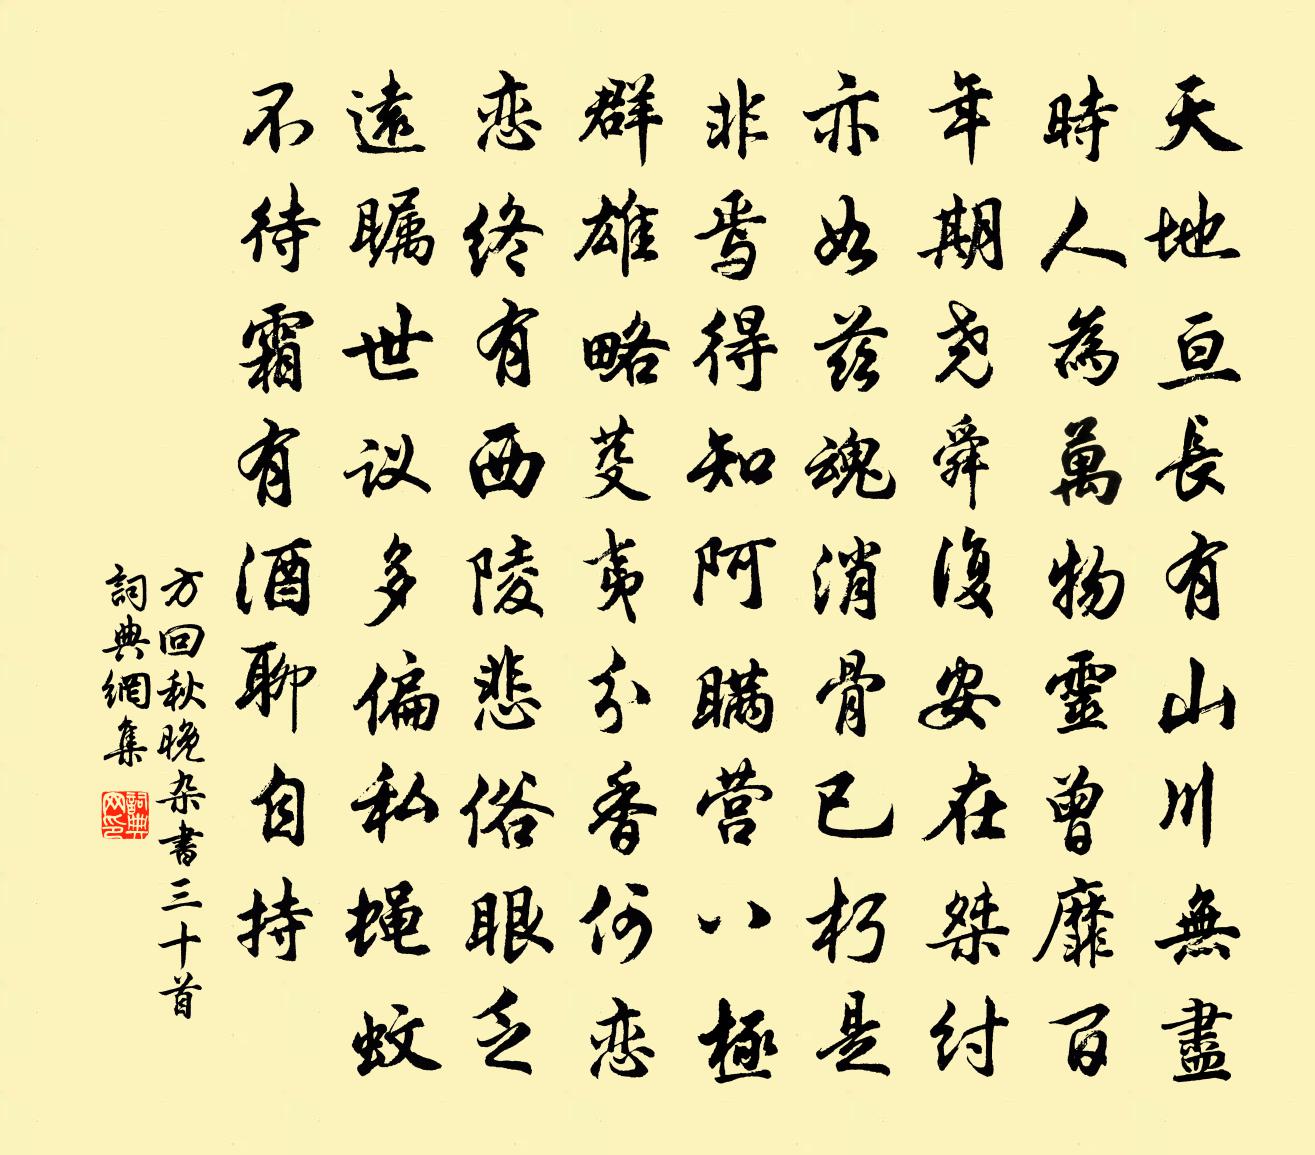 天地亘長有山川無盡
時人為萬物靈曾靡百
年期尧舜復安在桀紂
亦如兹魂消骨已朽是
非焉得知阿瞒营八極
群雄略芟夷分香何恋
恋终有西陵悲俗眼乏
遠瞩世议多偏私蝇蚊
不待霜有酒聊自持
方回秋晚杂書三十首
詞典網集
詞典網印